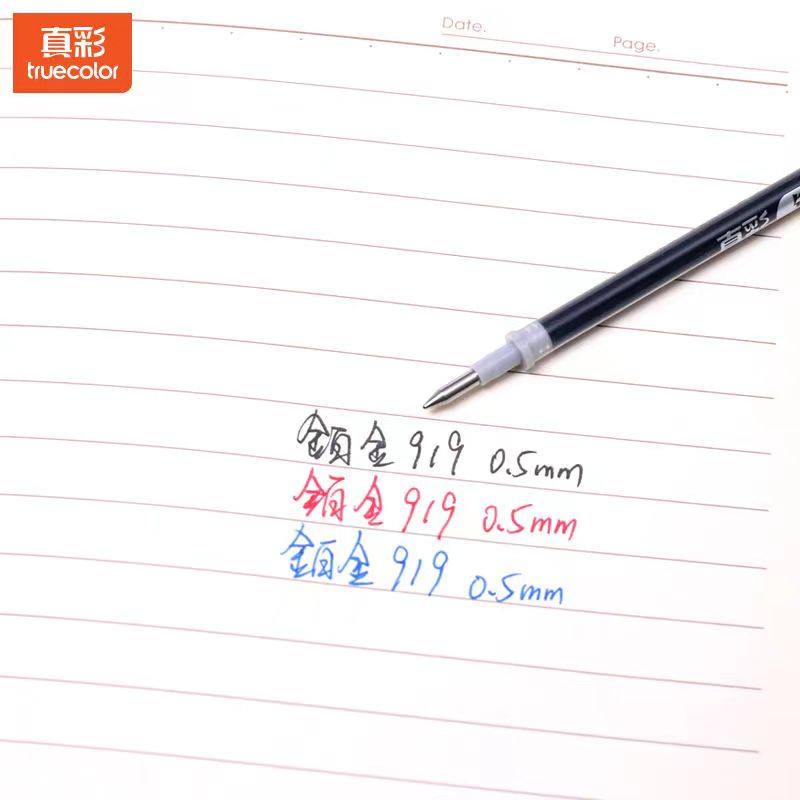 真彩
truecolor
Date.
Page.
真彩
鉑金 919 0.5mm
鉑金 919 0.5mm
鉑金 919 0.5mm